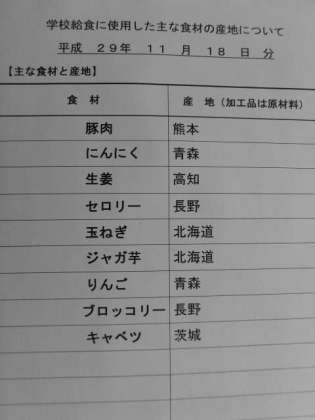 学校給食に使用した主な食材の産地について
平成 29年 11 月 18 日 分
【主な食材と産地】
食 材 産 地（加工品は原材料）
豚肉 熊本
にんにく 青森
生姜 高知
セロリー 長野
玉ねぎ 北海道
ジャガ芋 北海道
りんご 青森
ブロッコリー 長野
キャベツ 茨城